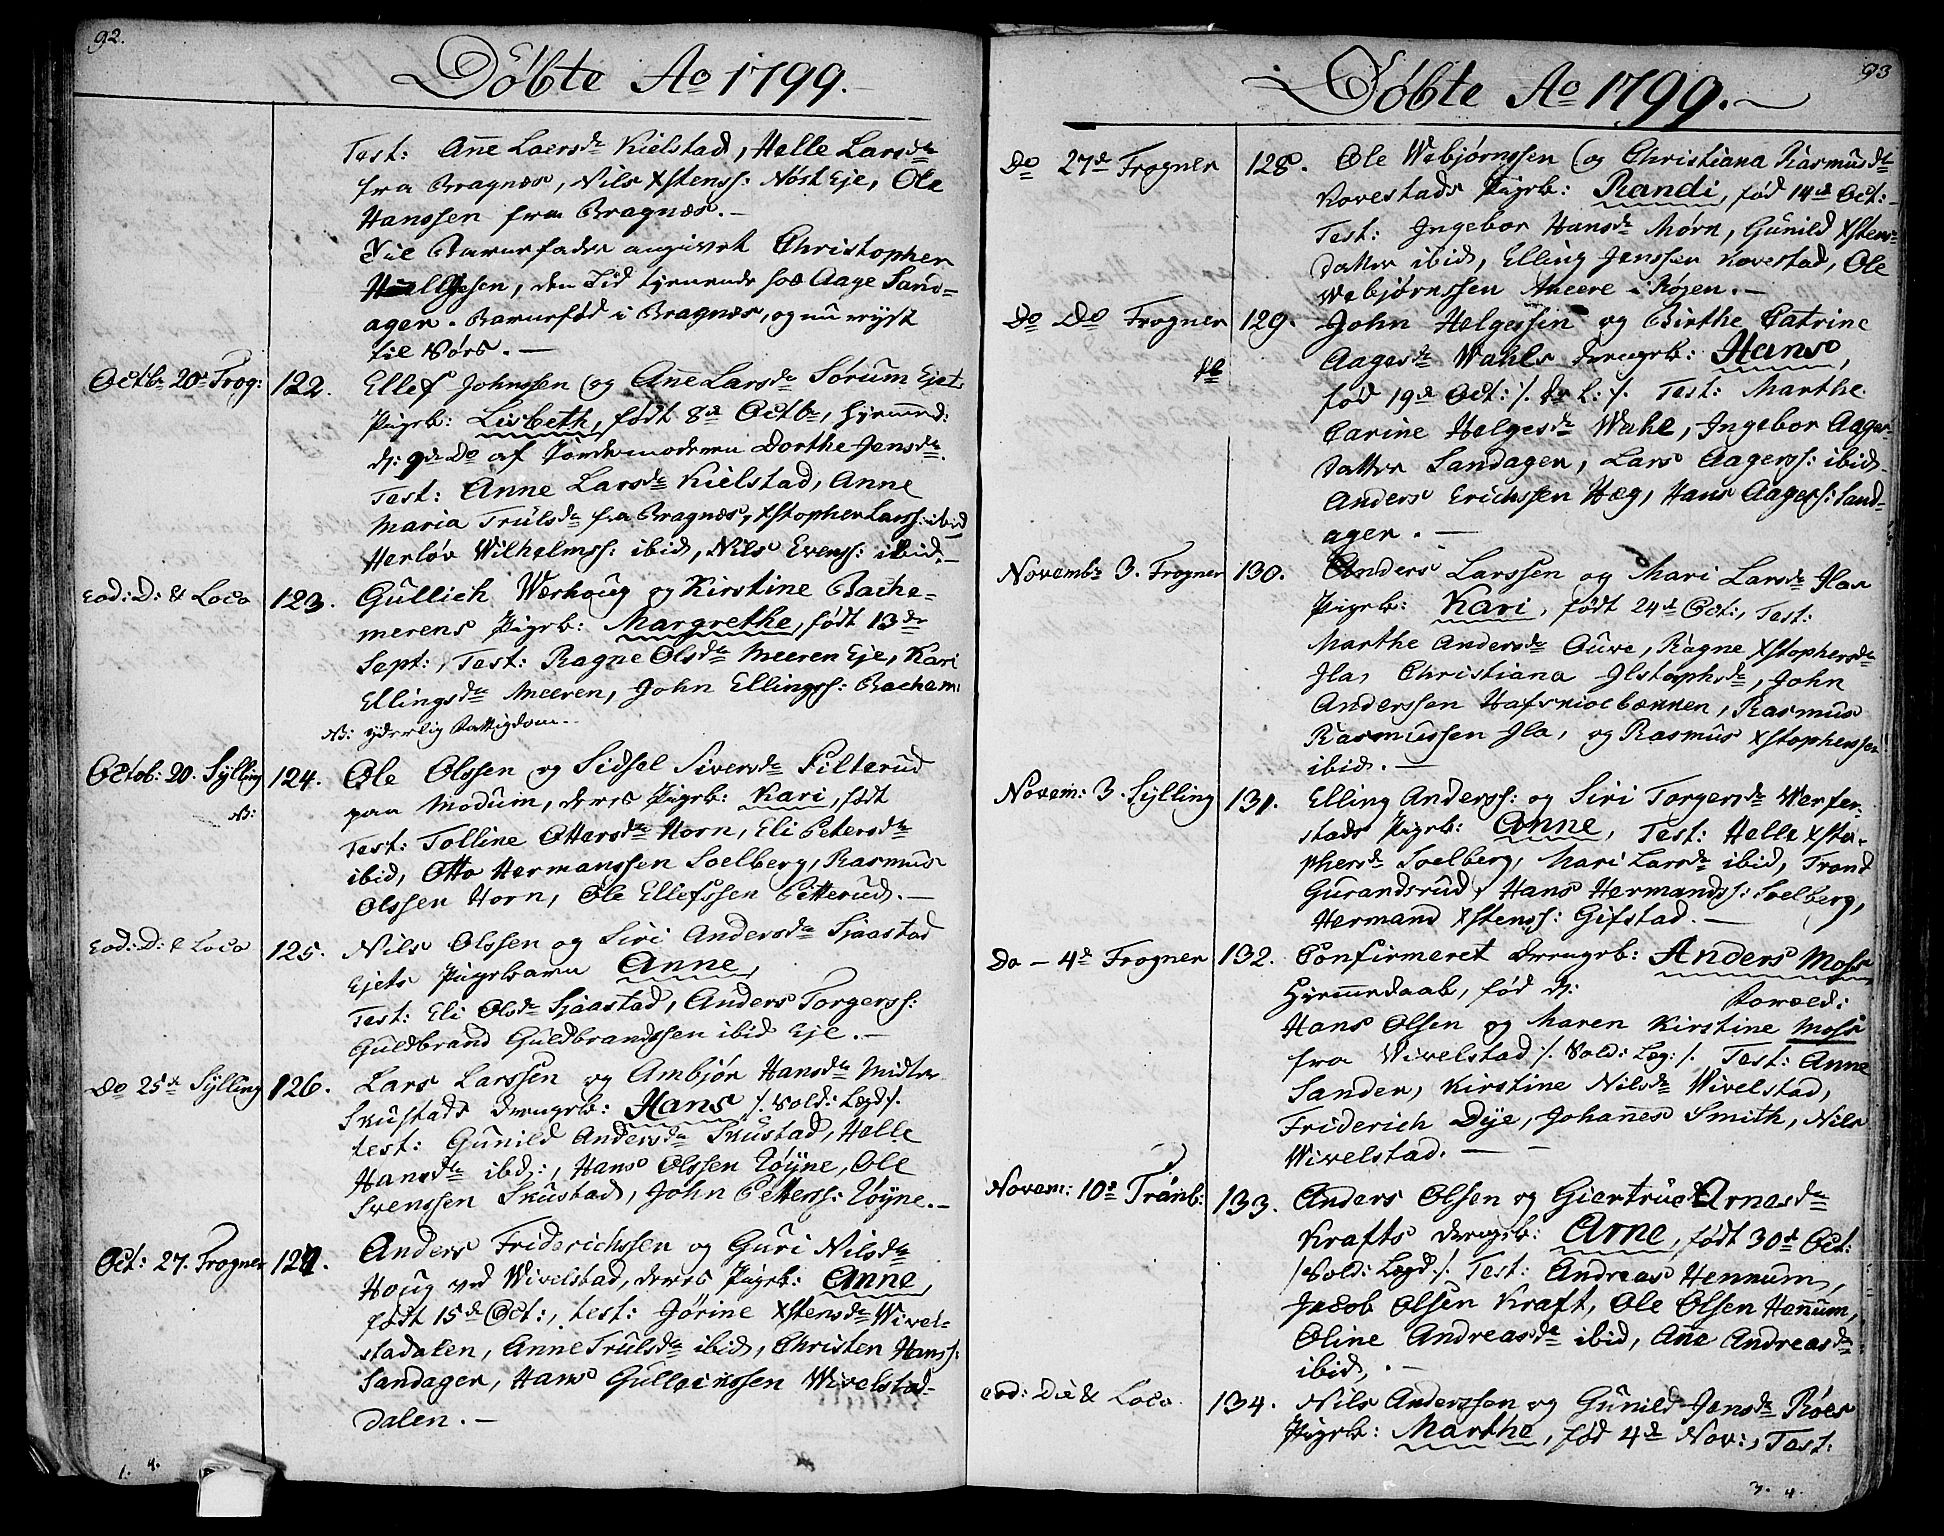 92.
Döbte Ao 1799.
Test: Añe Laersdr Kielstad, Helle Larsdr
fra Bragnæs, Nils Xstenss: Nöst Eje, Ole
Hanssen fra Bragnæs.-
Til Barnefader angivet Christopher
Hellgesen, den Tid tjenende hos Aage Sand-
ager. Barnet föd i Bragnæs, og nu reyst
til Sörs.-
Octbr 20d Frog: 122. Ellef Johnssen og Añe Larsdr Sörum Ejets
Pigeb: Lisbeth, födt 8de Octbr, hjemmed:
d: 9de Do af Jordemoderen Dorthe Jensdr.
Test: Anne Larsdr Kielstad, Anne
Maria Trulsdr fra Bragnæs, Xstopher Larss: ibid
Herlöv Wilhelmss: ibid, Nils Evenss: ibid.-
Eod: D: & Loco 123. Gullich Werhoug og Kirstine Bache-
merens Pigeb: Margrethe, födt 13de
Sept:, Test: Ragne Olsdr Meeren Eje, Kari
Ellingsdr Meeren, John Ellingss: Bachem:
NB: yderlig Fattigdom.-
Octob: 20. Sylling 124. Ole Olssen og Sidsel Siversdr Filterud
NB: paa Modum, deres Pigeb: Kari, födt
Test: Tolline Ottersdr Horn, Eli Petersdr
ibid, Otto Hermanssen Solberg, Rasmus
Olssen Horn, Ole Ellefssen Pitterud.-
Eod: D: & Loco 125. Nils Olssen og Siri Andersdr Sjaastad
Ejets Pigebarn Anne,
Test: Eli Olsdr Sjaastad, Anders Torgerss:
Guldbrand Guldbrandssen ibid Eje.-
Do 25de Sylling 126. Lars Larssen og Ambjör Hansdr Midter
Skustads Drengeb: Hans /. Sold: Legd /.
test: Gunild Andersdr Skustad, Helle
Hansdr ibid:, Hans Olssen Töyne, Ole
Svenssen Skustad, John Petterss: Töyne.-
Oct: 27. Frogner 127. Anders Friderichssen og Guri Nilsdr
Houg ved Wivelstad, deres Pigeb: Anne,
födt 15de Oct:, test: Jörine Xstensdr Wivel-
stadalen, Anne Trulsdr ibid, Christen Hanss:
Sandager, Hans Gulleinssen Wivelstad-
dalen.-
93
Döbte Ao 1799.-
Do 27de Frogner 128. Ole Webjörnssen og Christiana Rasmusdr
Kovestads Pigeb: Randi, föd 14de Oct:-
Test: Ingebor Hansdr Mörn, Gunild Xstens-
datter ibid, Elling Jenssen Kovestad, Ole
Webjörnssen Aneere i Röjen.-
Do Do Frogner 129. John Helgessen og Birthe Catrine
Aagesdr Wahls Drengeb: Hans,
föd 19de Oct: /. S: L: /. Test: Marthe
Carine Helgesdr Wahl, Ingebor Aages-
datter Sandager, Lars Aagerss: ibid-
Anders Erichssen Hæg, Hans Aagess: Sand-
ager.-
Novembr 3. Frogner 130. Anders Larssen og Mari Larsdr Ilas
Pigeb: Kari, födt 24de Oct:, Test:
Marthe Andersdr Auve, Ragne Xstophersdr
Ila, Christiana Ilstophsdr, John
Anderssen Hafsniolbænnen, Rasmus
Rasmussen Ila, og Rasmus Xstopherssen
ibid.-
Novem: 3. Sylling 131. Elling Anderss: og Siri Torgersdr Werfer-
stads Pigeb: Anne, Test: Helle Xsto-
phersdr Solberg, Mari Larsdr ibid, Trond
Gurandsrud, Hans Hermandss: Solberg,
Hermand Xstenss: Gifstad.-
Do - 4de Frogner 132. Confirmeret Drengeb: Anders Moss
Hjemmedaab, föd d: Foræld:
Hans Olsen og Maren Kirstine Moss
fra Wivelstad /. Sold: Leg: /. Test: Anne
Sander, Kirstine Nilsdr Wivelstad,
Friderich Dye, Johañes Smith, Nils
Wivelstad.-
Novem: 10de Tranb: 133. Anders Olsen og Giertrud Arnesdr
Krafts Drengeb: Arne, födt 30de Oct:
/Sold: Legd /. Test: Andreas Hennum,
Jacob Olsen Kraft, Ole Olsen Heñum,
Oline Andreasdr ibid, Añe Andreasdr
ibid.-
eod: Die & Loco. 134. Nils Anderssen og Gunild Jensdr Röes
Pigeb: Marthe, föd 4de Nov:, Test: